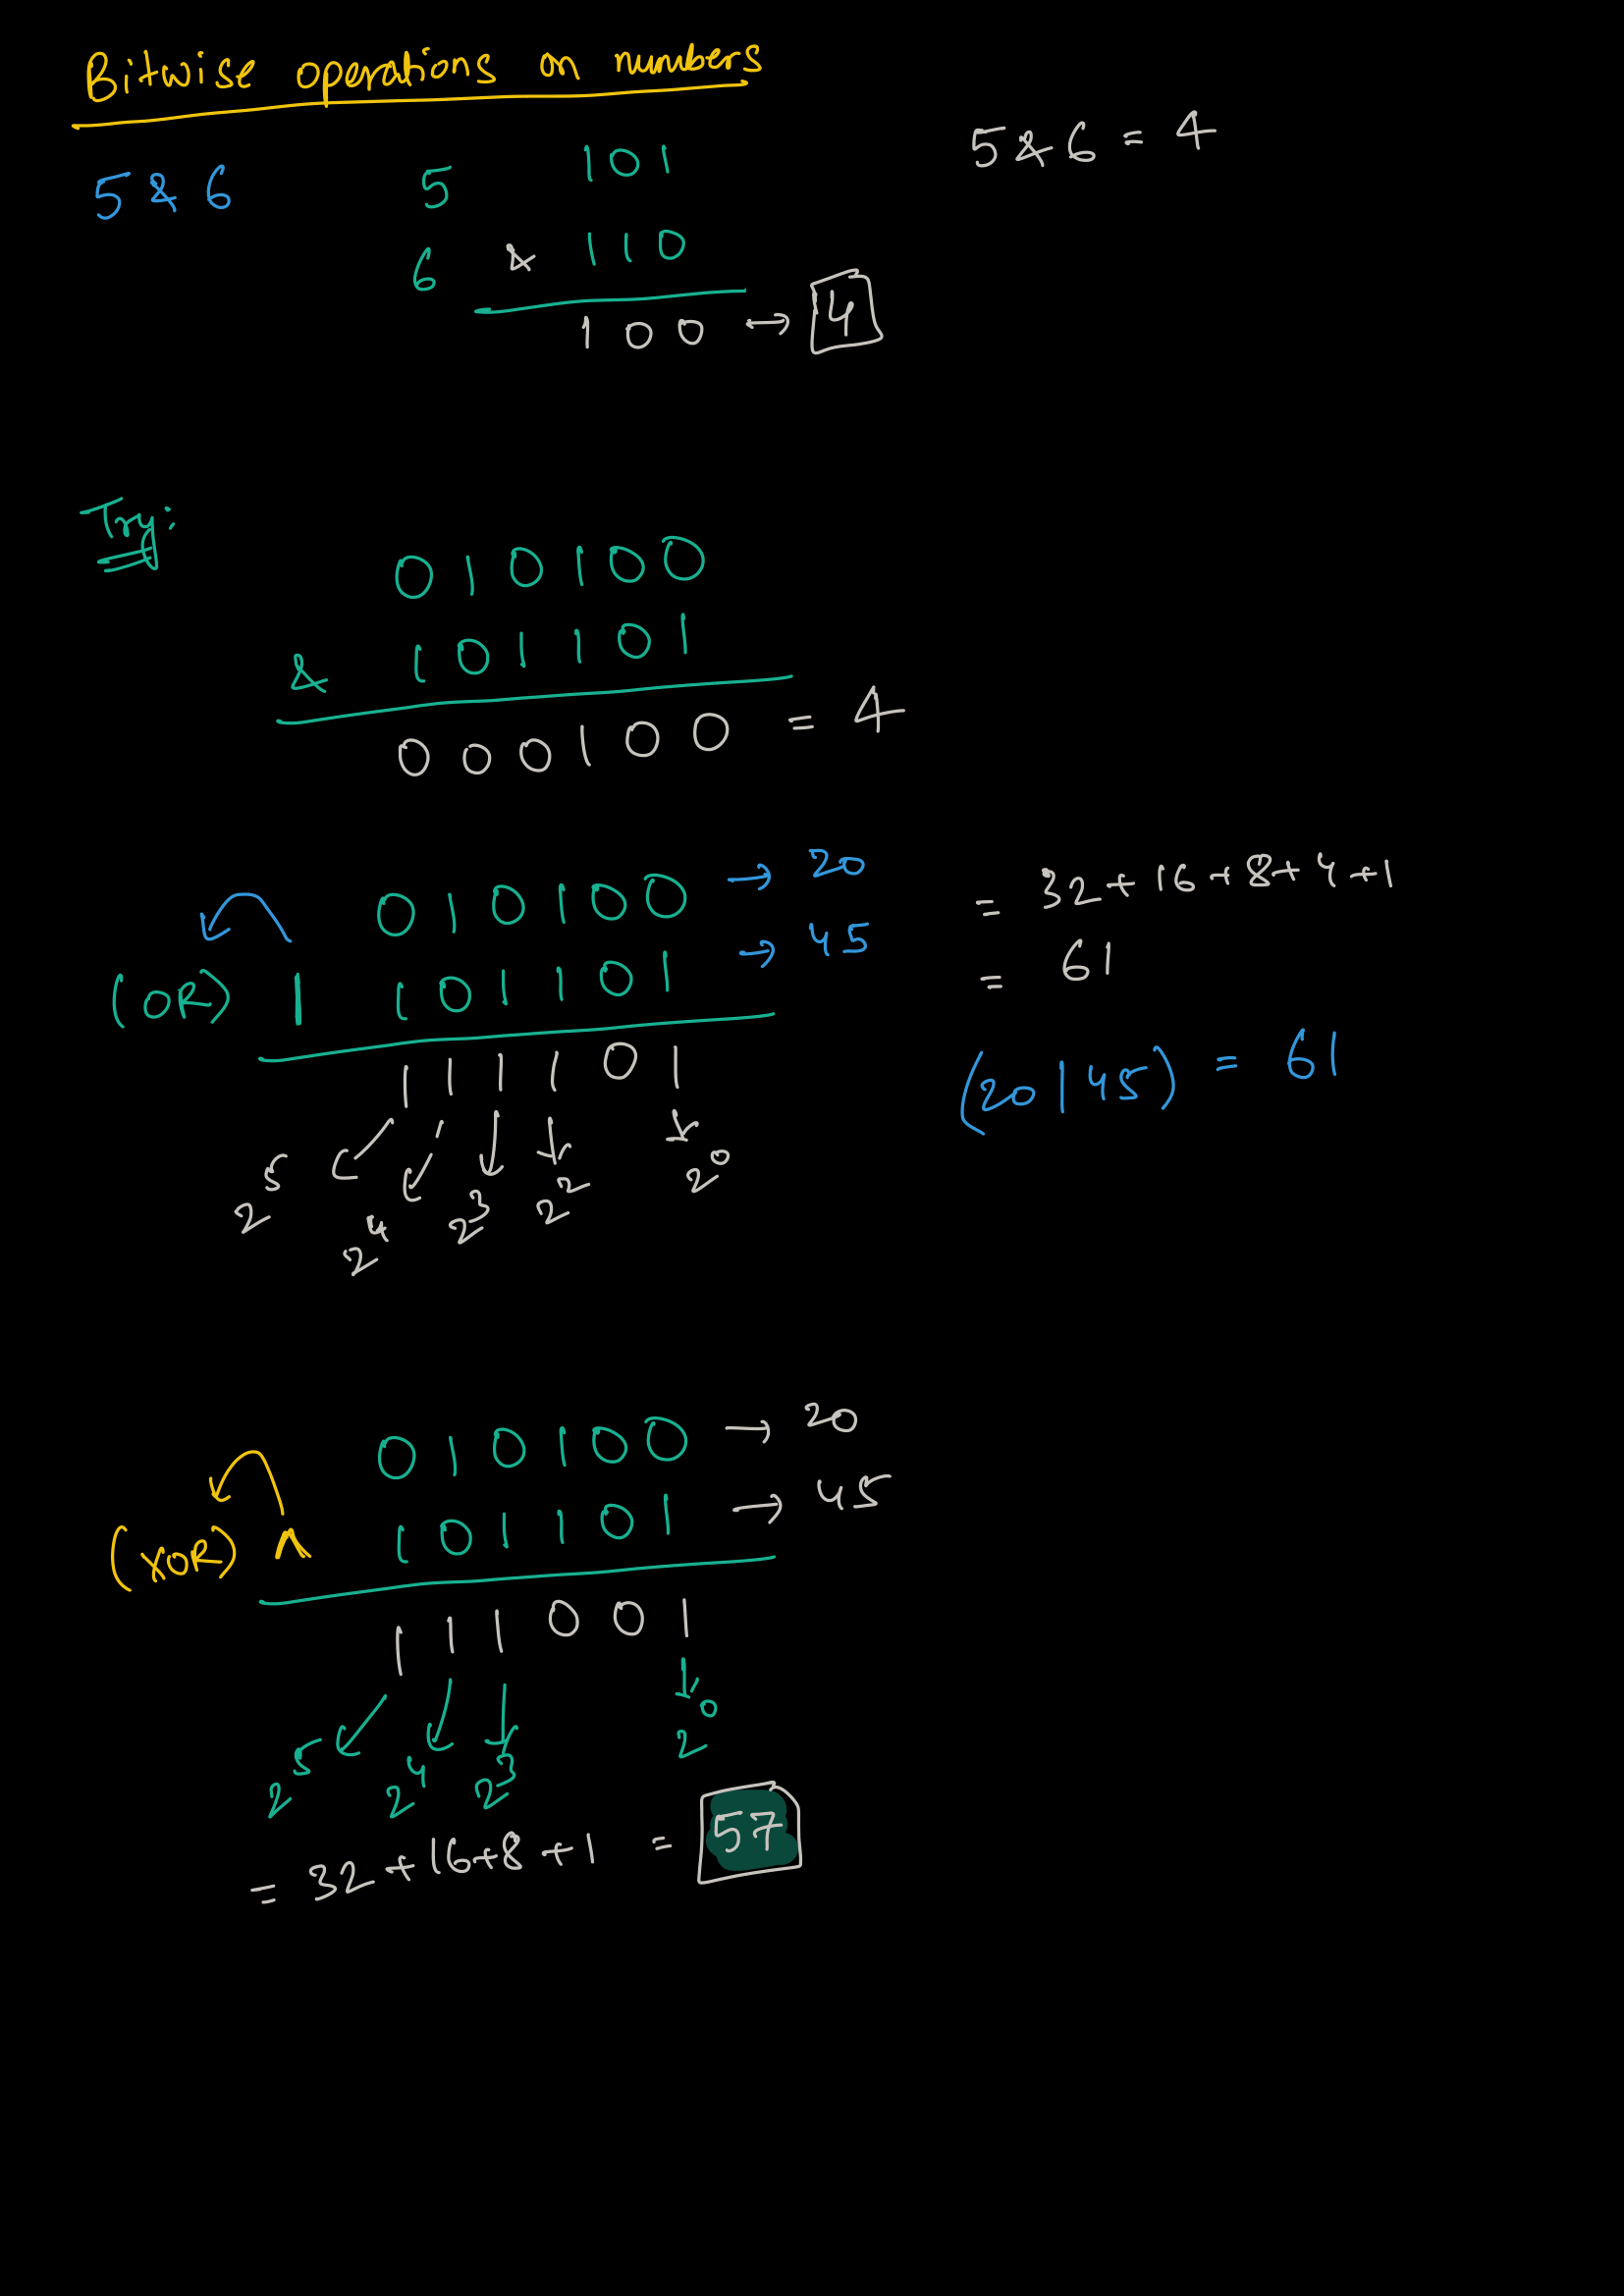 Bitwise operations on numbers
5 & 6
5 101
6 & 110
100 → 4
5 & 6 = 4
Try:
010100
& 101101
000100 = 4
010100 → 20
(OR) | 101101 → 45
111101
2^5 2^4 2^3 2^2 2^0
= 32 + 16 + 8 + 4 + 1
= 61
(20 | 45) = 61
010100 → 20
(XOR) ^ 101101 → 45
111001
2^5 2^4 2^3 2^0
= 32 + 16 + 8 + 1 = 57